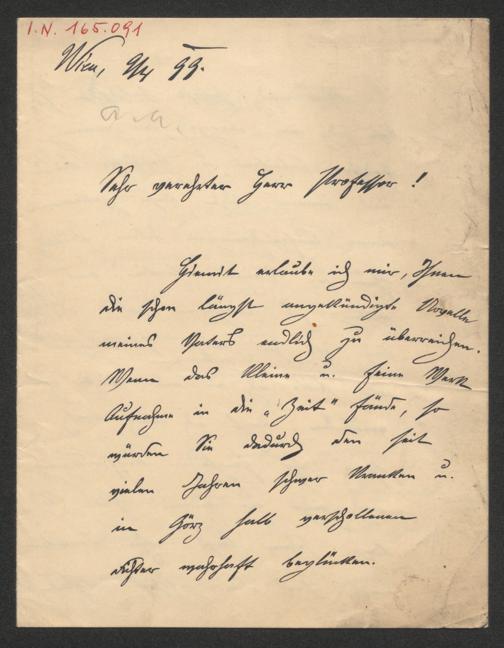 I.N. 165.091
Wien, 9/X 99.
a.a.
Sehr verehrter Herr Professor!
Hiemit erlaube ich mir, Ihnen
die schon längst angekündigte Novelle
meines Vaters endlich zu überreichen.
Wenn das kleine u. feine Werk
Aufnahme in die „Zeit" fände, so
würden Sie dadurch den seit
vielen Jahren schwer kranken u.
in Görz halb verschollenen
Dichter wahrhaft beglücken.